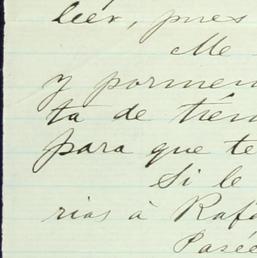 leer, pues
Me
y pormen
ta de tien
para que te
Si le
rias à Rafa
Paseé